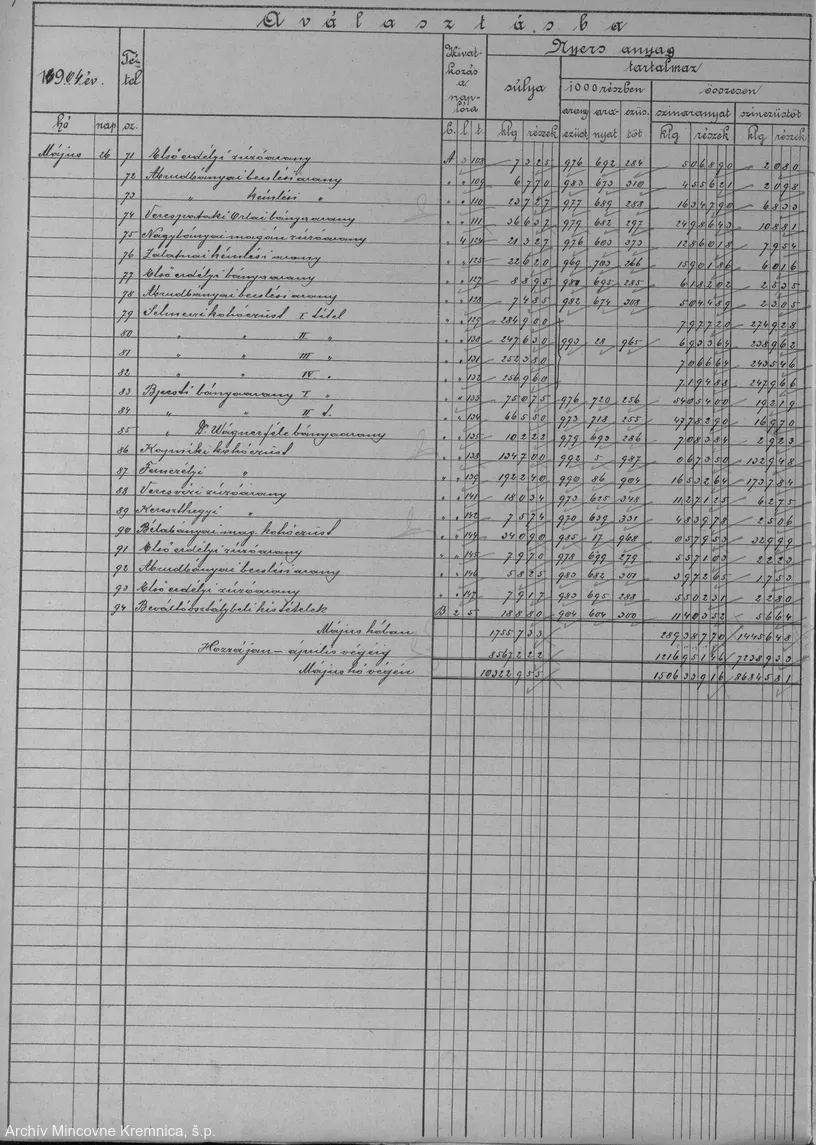 A választásba
1904 év.
Té-
tel
Hivat-
kozás
a
nap-
lóra
Nyers anyag
súlya
tartalmaz
1000 részben
összesen
arany
ezüst
ara-
nyat
ezüs-
töt
színaranyat
színezüstöt
hó nap sz. C. l. t. klg részek klg részek klg részek
Május 26 71 Első erdélyi zúzóarany A 3 108 7325 976 692 284 506890 2080
72 Abrudbányai beeslési arany " " 109 6770 983 673 310 455621 2098
73 " kémlési " " " 110 23727 977 689 288 1634790 6833
74 Verespataki Orlai bányaarany " " 111 36637 979 682 297 2498643 10881
75 Nagybányai magán zúzóarany " 4 124 21327 976 603 373 1286018 7954
76 Zalatnai kémlési arany " " 125 22620 969 703 266 1590186 6016
77 Első erdélyi bányaarany " " 127 8895 980 695 285 618202 2535
78 Abrudbányai beeslési arany " " 128 7485 982 674 308 504489 2305
79 Selmeczi kohóezüst I tétel " " 129 284900 797720 274928
80 " " II " " " 130 247630 993 28 965 693364 238962
81 " " III " " " 131 252380 706664 243546
82 " " IV " " " 132 256960 719488 247966
83 Bpesti bányaarany I " " " 133 75075 976 720 256 5405400 19219
84 " " II t. " " 134 66550 973 718 255 4778290 16970
85 " Dr Wágnerféle bányaarany " " 135 10222 979 693 286 708384 2923
86 Kapniki kohóezüst " " 138 134700 992 5 987 067350 132948
87 Fernezelyi " " " 139 192240 990 86 904 1653264 173784
88 Veresvizi zúzóarany " " 141 18034 973 625 348 1127125 6275
89 Kereszthegyi " " " 142 7574 970 639 331 483978 2506
90 Bélabányai mag. kohóezüst " " 144 34090 985 17 968 057953 32999
91 Első erdélyi zúzóarany " " 145 7970 978 699 279 557103 2223
92 Abrudbányai beeslési arany " " 146 5825 983 682 301 397265 1753
93 Első erdélyi zúzóarany " " 147 7917 983 695 288 550231 2280
94 Beváltóosztálybeli kis tételek B 2 5 18880 904 604 300 1140352 5664
Május hóban 1755733 28938770 1445648
Hozzá jan – április végéig 8567222 121695146 7238933
Május hó végén 10322955 150633916 8684581
Archív Mincovne Kremnica, š.p.